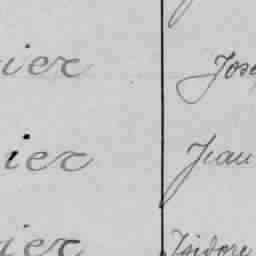 ier Jose
ier Jean
ier Isidore